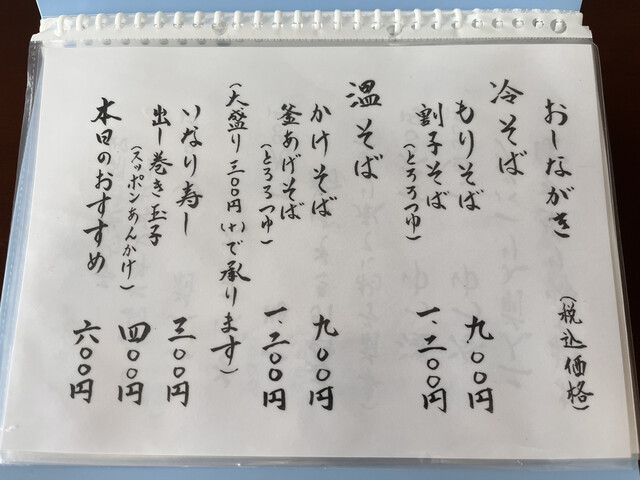 おしながき
(税込価格)
冷そば
もりそば 九〇〇円
割子そば 一、二〇〇円
(とろろつゆ)
温そば
かけそば 九〇〇円
釜あげそば 一、二〇〇円
(とろろつゆ)
(大盛り三〇〇円(+)で承ります)
いなり寿し 三〇〇円
出し巻き玉子 四〇〇円
(スッポンあんかけ)
本日のおすすめ 六〇〇円